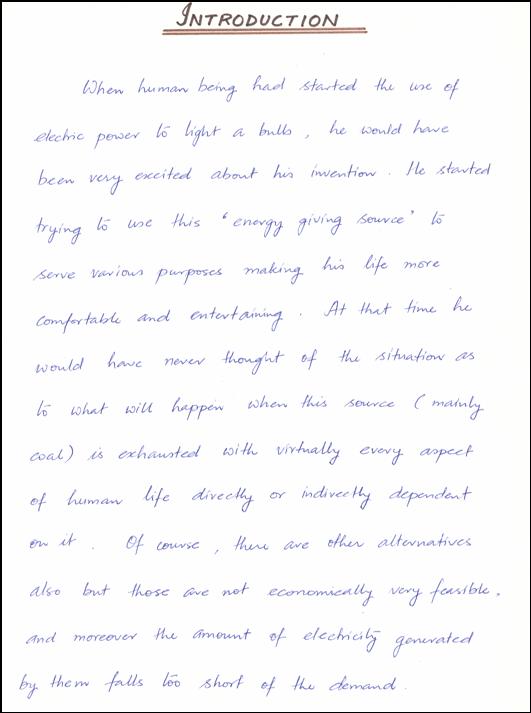 INTRODUCTION
When human being had started the use of
electric power to light a bulb, he would have
been very excited about his invention. He started
trying to use this 'energy giving source' to
serve various purposes making his life more
comfortable and entertaining. At that time he
would have never thought of the situation as
to what will happen when this source (mainly
coal) is exhausted with virtually every aspect
of human life directly or indirectly dependent
on it. Of course, there are other alternatives
also but those are not economically very feasible,
and moreover the amount of electricity generated
by them falls too short of the demand.